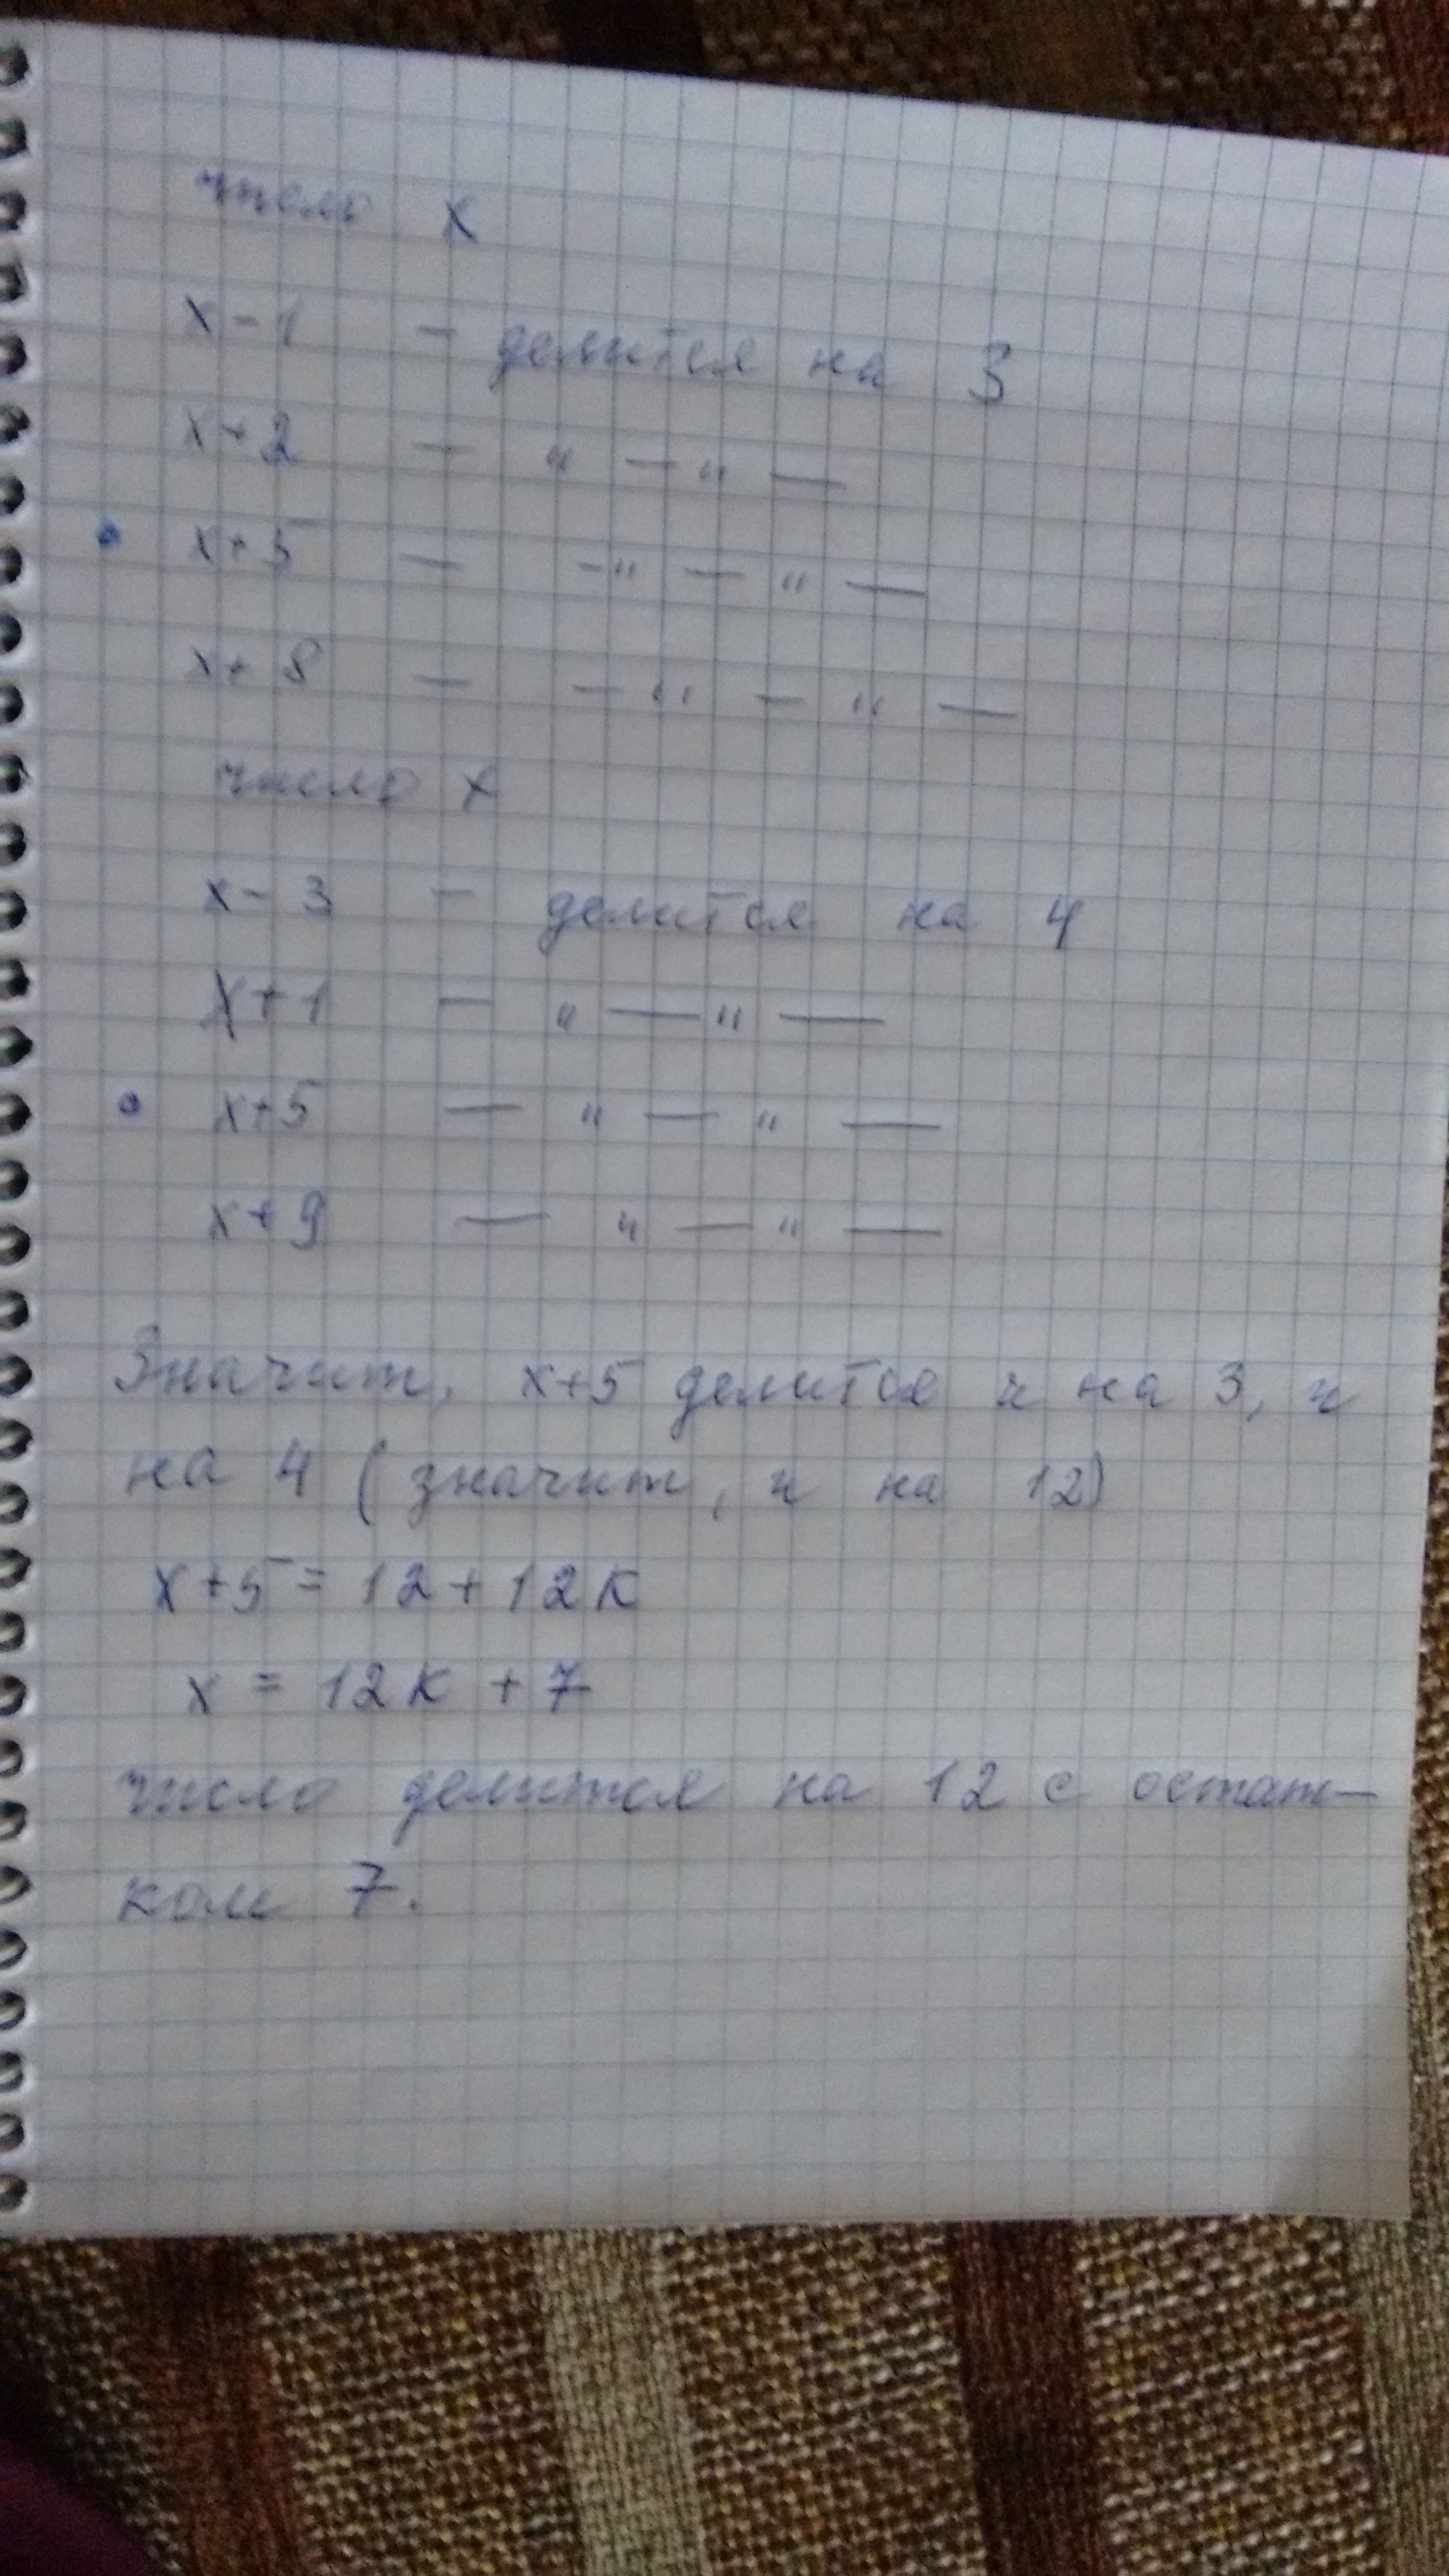 число x
x-1 - делится на 3
x+2 — " — " —
• x+5 — -" — " —
x+8 — — " — " —
число x
x-3 - делится на 4
x+1 — " — " —
• x+5 — " — " —
x+9 — " — " —
Значит, x+5 делится и на 3, и
на 4 (значит, и на 12)
x+5=12+12k
x = 12k + 7
число делится на 12 с остат-
ком 7.